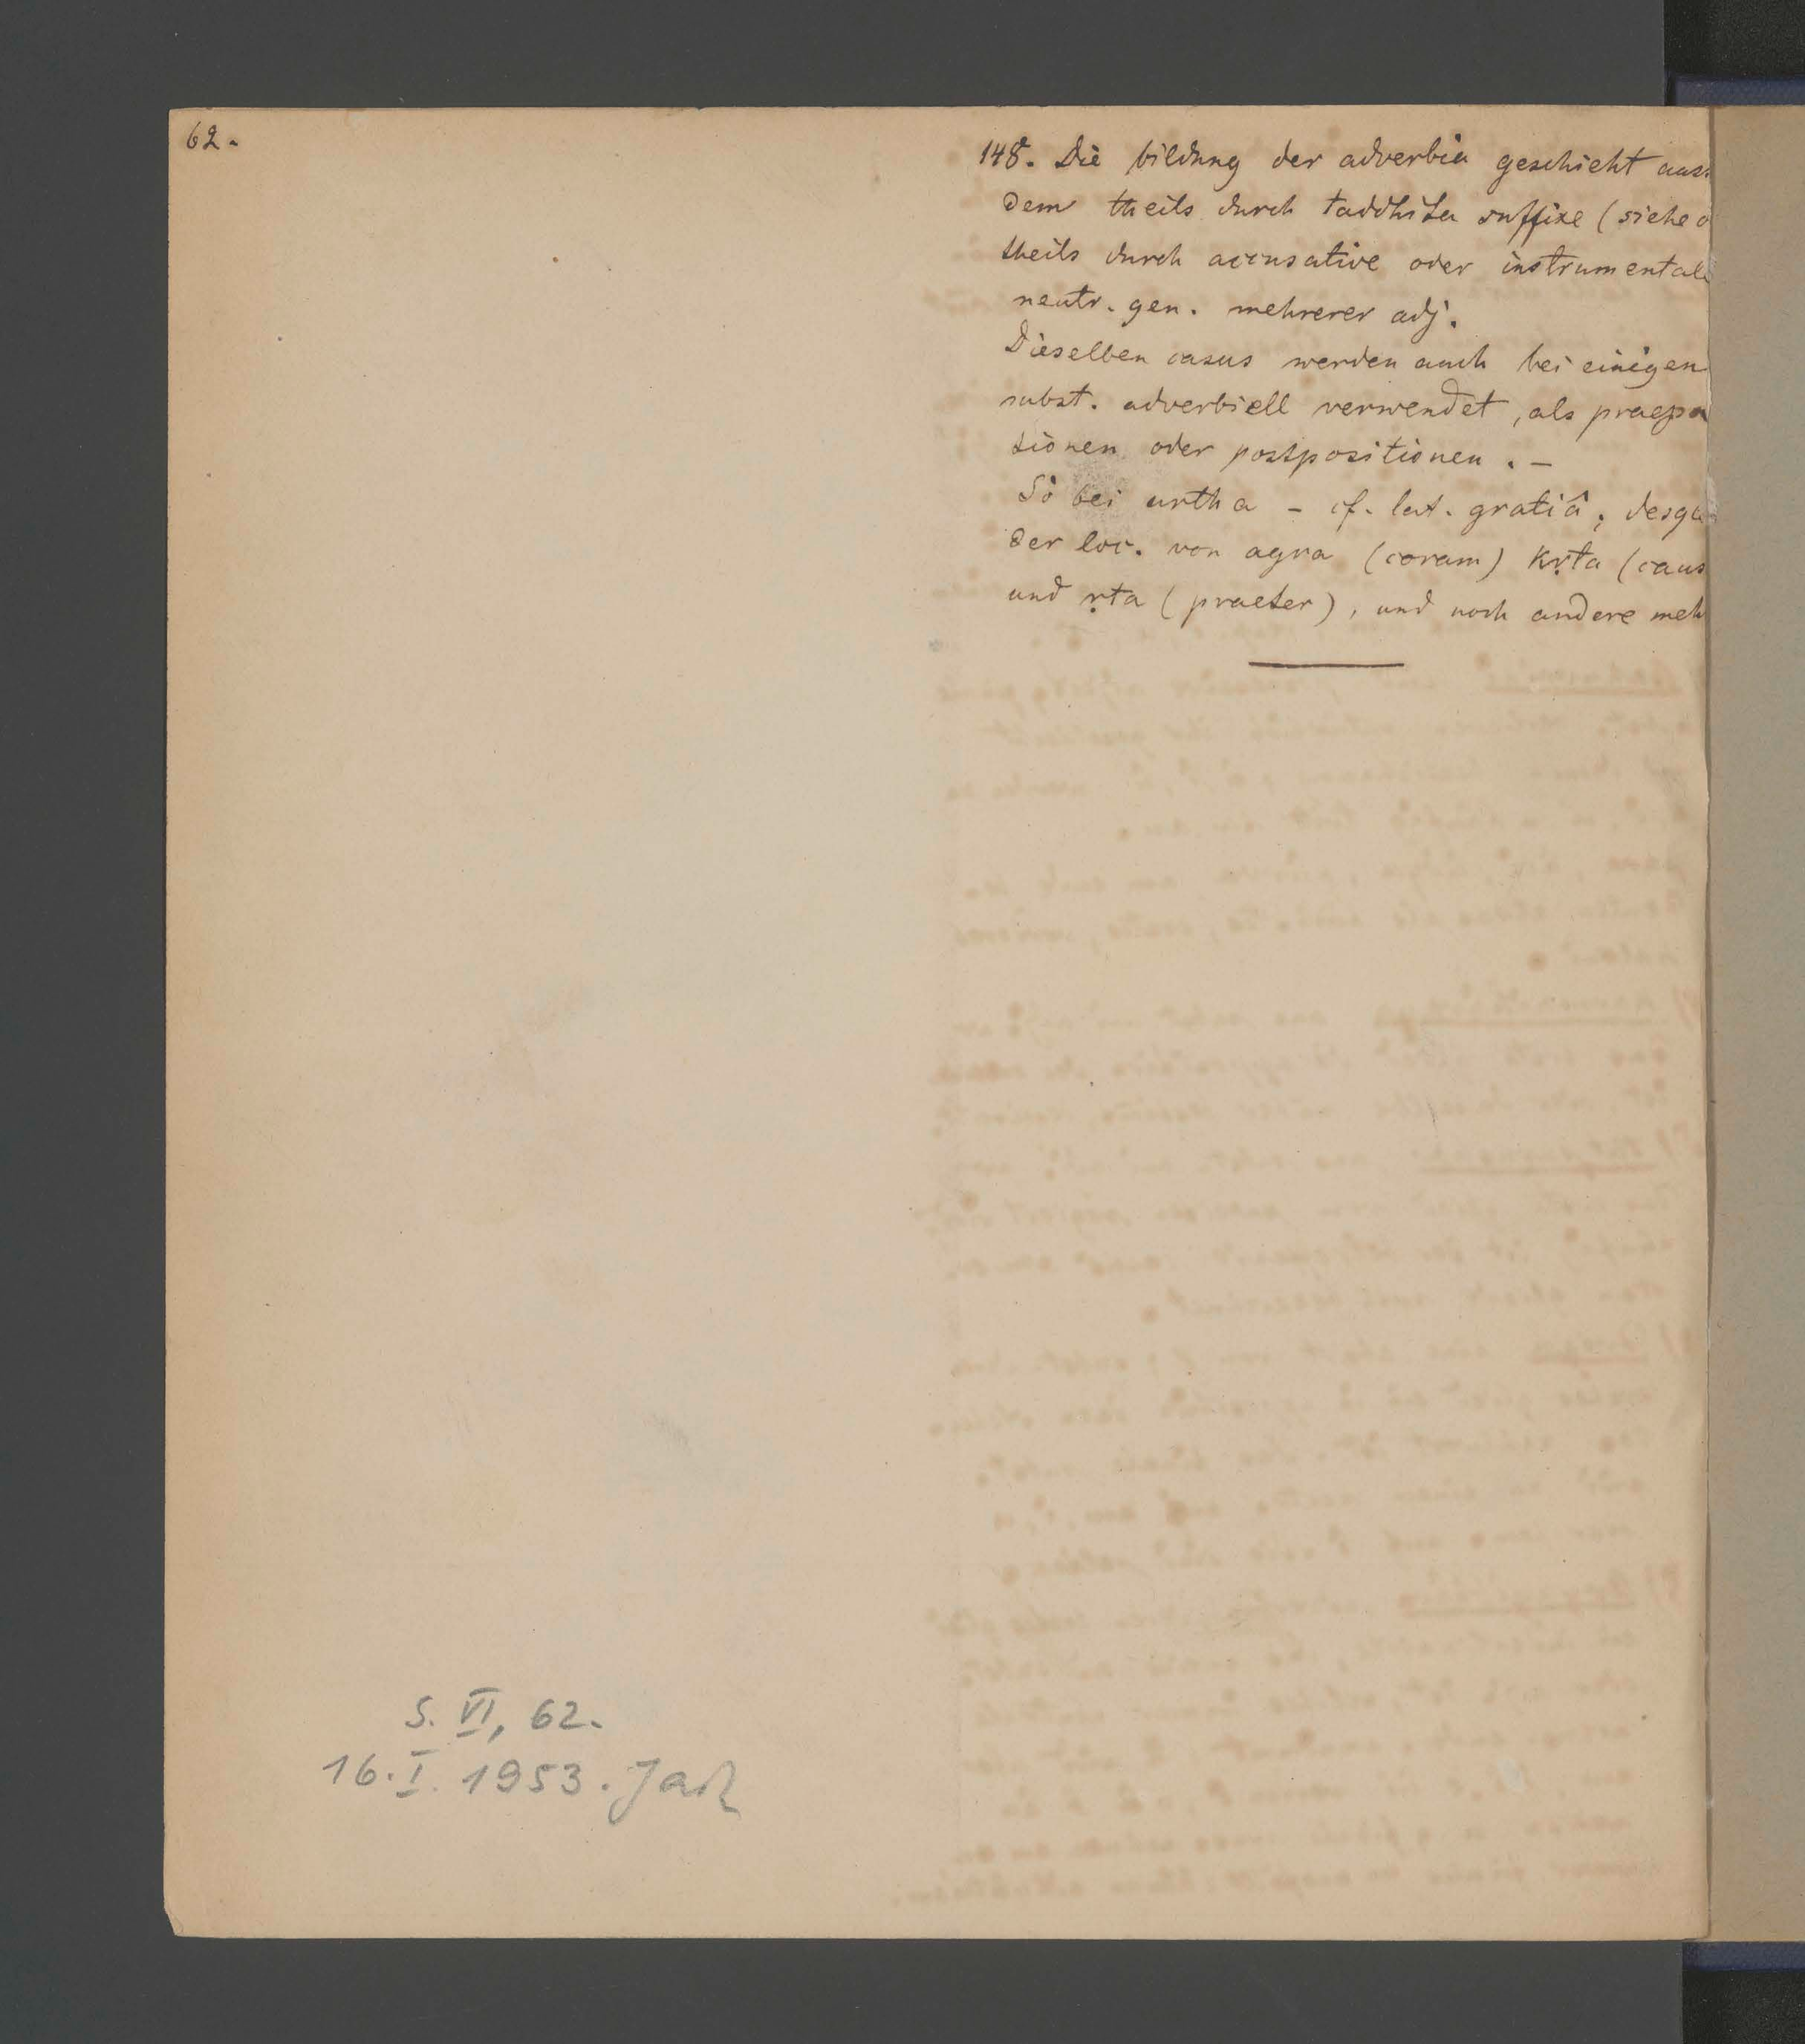 62.
148. Die bildung der adverbia geschieht auss
dem theils durch taddhita suffixe (siehe o
theils durch accusative oder instrumentale
neutr. gen. mehrerer adj.
Dieselben casus werden auch bei einigen
subst. adverbiell verwendet, als praepo
sionen oder postpositionen. –
So bei artha – cf. lat. gratiâ; desgl
der loc. von agra (coram) kṛta (caus
und ṛta (praeter), und noch andere meh
S. VI, 62.
16. I. 1953.